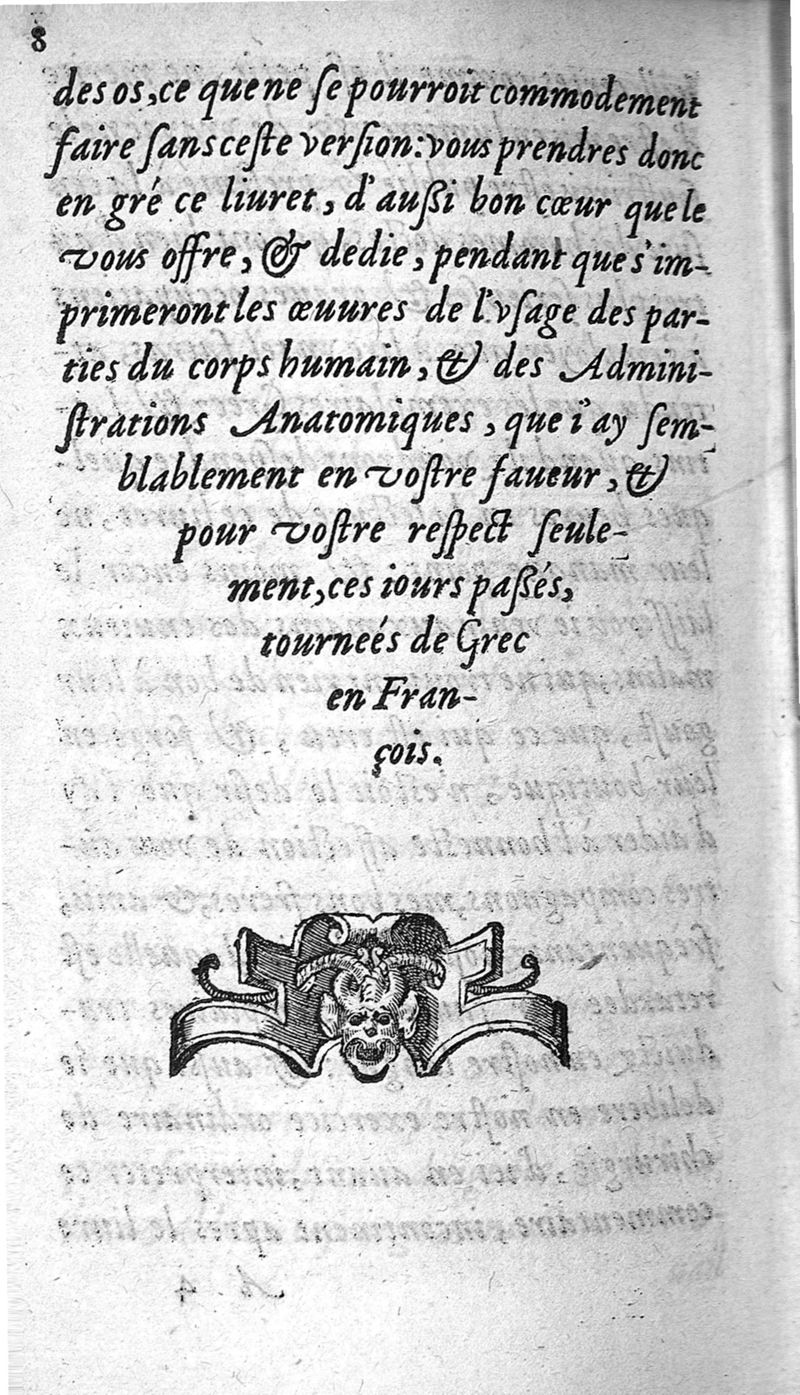 8
des os, ce que ne se pourroit commodement
faire sans ceste version: vous prendres donc
en gré ce liuret, d'außi bon cœur que le
vous offre, & dedie, pendant que s'im-
primeront les œuures de l'vsage des par-
ties du corps humain, & des Admini-
strations Anatomiques, que i'ay sem-
blablement en vostre faueur, &
pour vostre respect seule-
ment, ces iours paßés,
tourneés de Grec
en Fran-
çois.